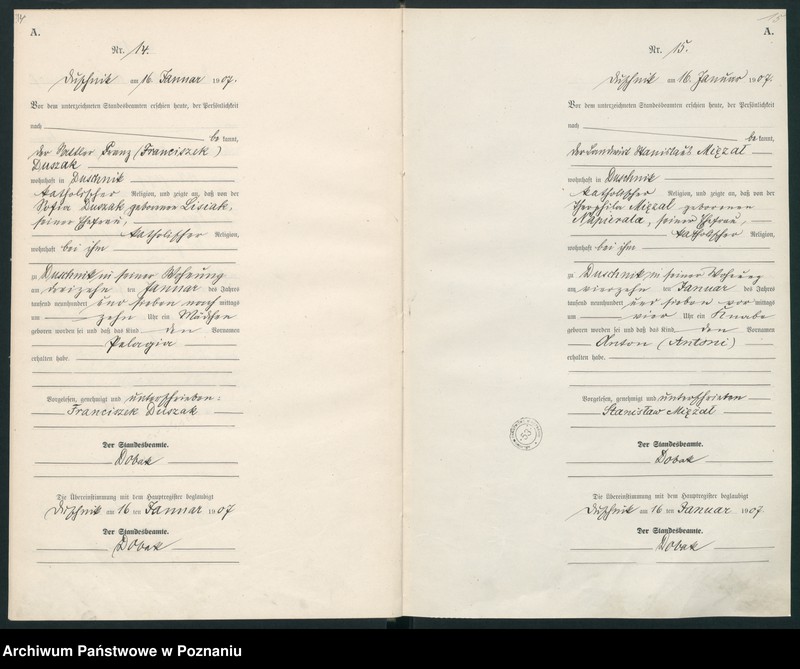 A.
Nr. 14.
Duschnik am 16 Januar 1907.
Vor dem unterzeichneten Standesbeamten erschien heute, der Persönlichkeit
nach
bekannt,
der Sattler Franz (Franciszek)
Duszak
wohnhaft in Duschnik
katholischer Religion, und zeigte an, daß von der
Sofia Duszak geborenen Lisiak,
seiner Ehefrau,
katholischer Religion,
wohnhaft bei ihm
zu Duschnik in seiner Wohnung
am dreizehn ten Januar des Jahres
tausend neunhundert und sieben nach mittags
um zehn Uhr ein Mädchen
geboren worden sei und daß das Kind den Vornamen
Pelagia
erhalten habe.
Vorgelesen, genehmigt und unterschrieben:
Franciszek Duszak
Der Standesbeamte.
Dobak
Die Übereinstimmung mit dem Hauptregister beglaubigt
Duschnik am 16 ten Januar 1907
Der Standesbeamte.
Dobak
15
A.
Nr. 15.
Duschnik am 16. Januar 1907.
Vor dem unterzeichneten Standesbeamten erschien heute, der Persönlichkeit
nach
bekannt,
der Landwirt Stanislaus Mizzal
wohnhaft in Duschnik
katholischer Religion, und zeigte an, daß von der
Theophila Mizzal geborenen
Napierala, seiner Ehefrau,
katholischer Religion,
wohnhaft bei ihm
zu Duschnik in seiner Wohnung
am vierzehn ten Januar des Jahres
tausend neunhundert und sieben vor mittags
um vier Uhr ein Knabe
geboren worden sei und daß das Kind den Vornamen
Anton (Antoni)
erhalten habe.
Vorgelesen, genehmigt und unterschrieben
Stanisław Mizzał
Der Standesbeamte.
Dobak
Die Übereinstimmung mit dem Hauptregister beglaubigt
Duschnik am 16 ten Januar 1907
Der Standesbeamte.
Dobak
53
Archiwum Państwowe w Poznaniu